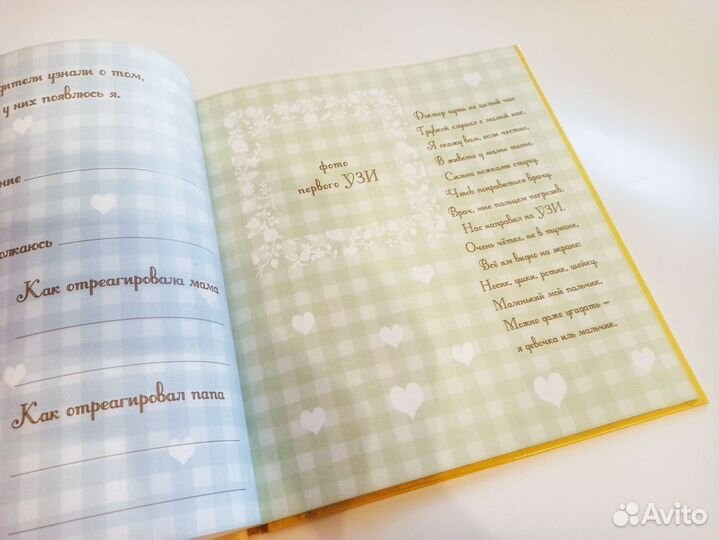 дители узнали о том,
у них появлюсь я.
ние
олкаюсь
Как отреагировала мама
Как отреагировал папа
фото
первого УЗИ
Доктор чуть не целый час
Трубкой слушал с мамой нас.
Я скажу вам, если честно,
В животе у мамы тесно.
Сильно ножками стучу,
Чтоб понравиться врачу.
Врач, мне пальцем погрозив,
Нас направил на УЗИ.
Очень чётко, не в тумане,
Всё им видно на экране:
Носик, ушки, ротик, шейку,
Маленький мой пальчик.
Можно даже угадать –
я девочка иль мальчик.
Avito